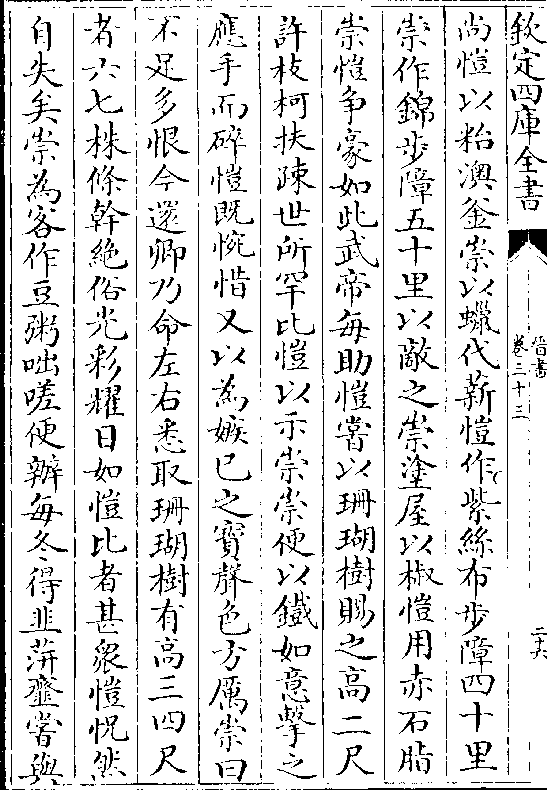 欽定四庫全書
晉書
卷三十三
二六
尚愷以粭澳釜崇以蠟代薪愷作紫絲布步障四十里
崇作錦步障五十里以敵之崇塗屋以椒愷用赤石脂
崇愷爭豪如此武帝每助愷嘗以珊瑚樹賜之高二尺
許枝柯扶疎世所罕比愷以示崇崇便以鐵如意擊之
應手而碎愷既惋惜又以為嫉已之寳聲色方厲崇曰
不足多恨今還卿乃命左右悉取珊瑚樹有高三四尺
者六七株條幹絶俗光彩耀日如愷比者甚衆愷怳然
自失矣崇為客作豆粥咄嗟便辦每冬得韭蓱虀嘗與